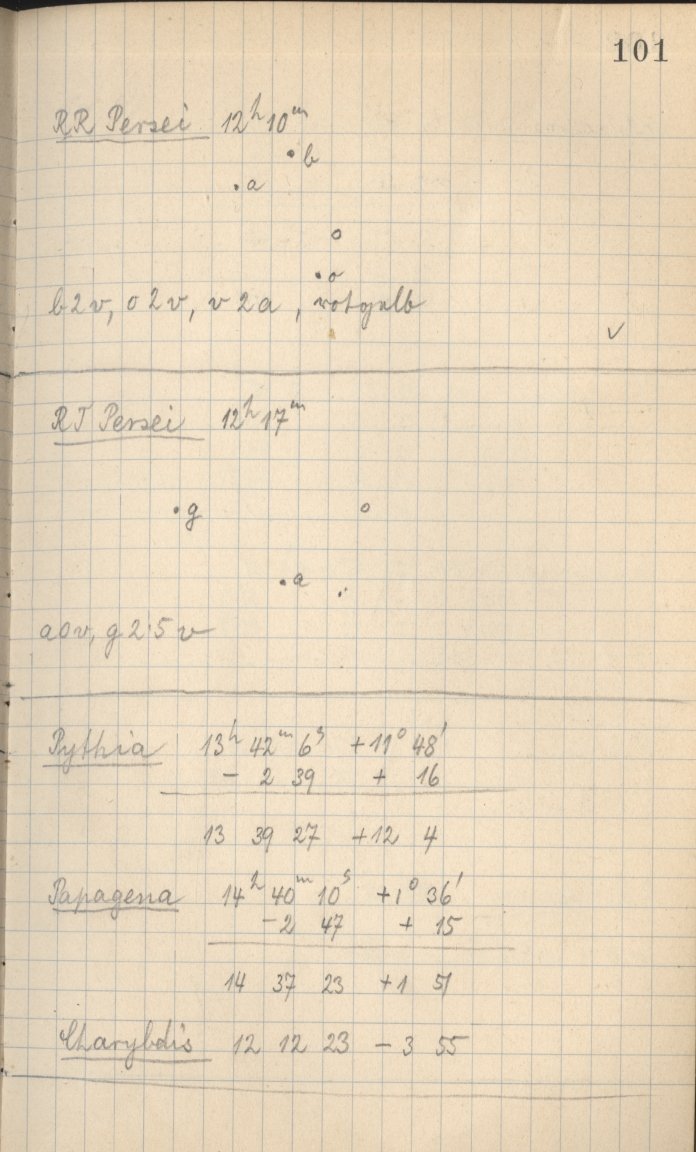 101
RR Persei 12h 10m
b
a
o
b2v, o2v, v2a, rotgelb
✓
RT Persei 12h 17m
g
a
a0v, g2·5v
Pythia 13h 42m 6s +11° 48'
- 2 39 + 16
13 39 27 +12 4
Papagena 14h 40m 10s +1° 36'
-2 47 + 15
14 37 23 +1 51
Charybdis 12 12 23 -3 55